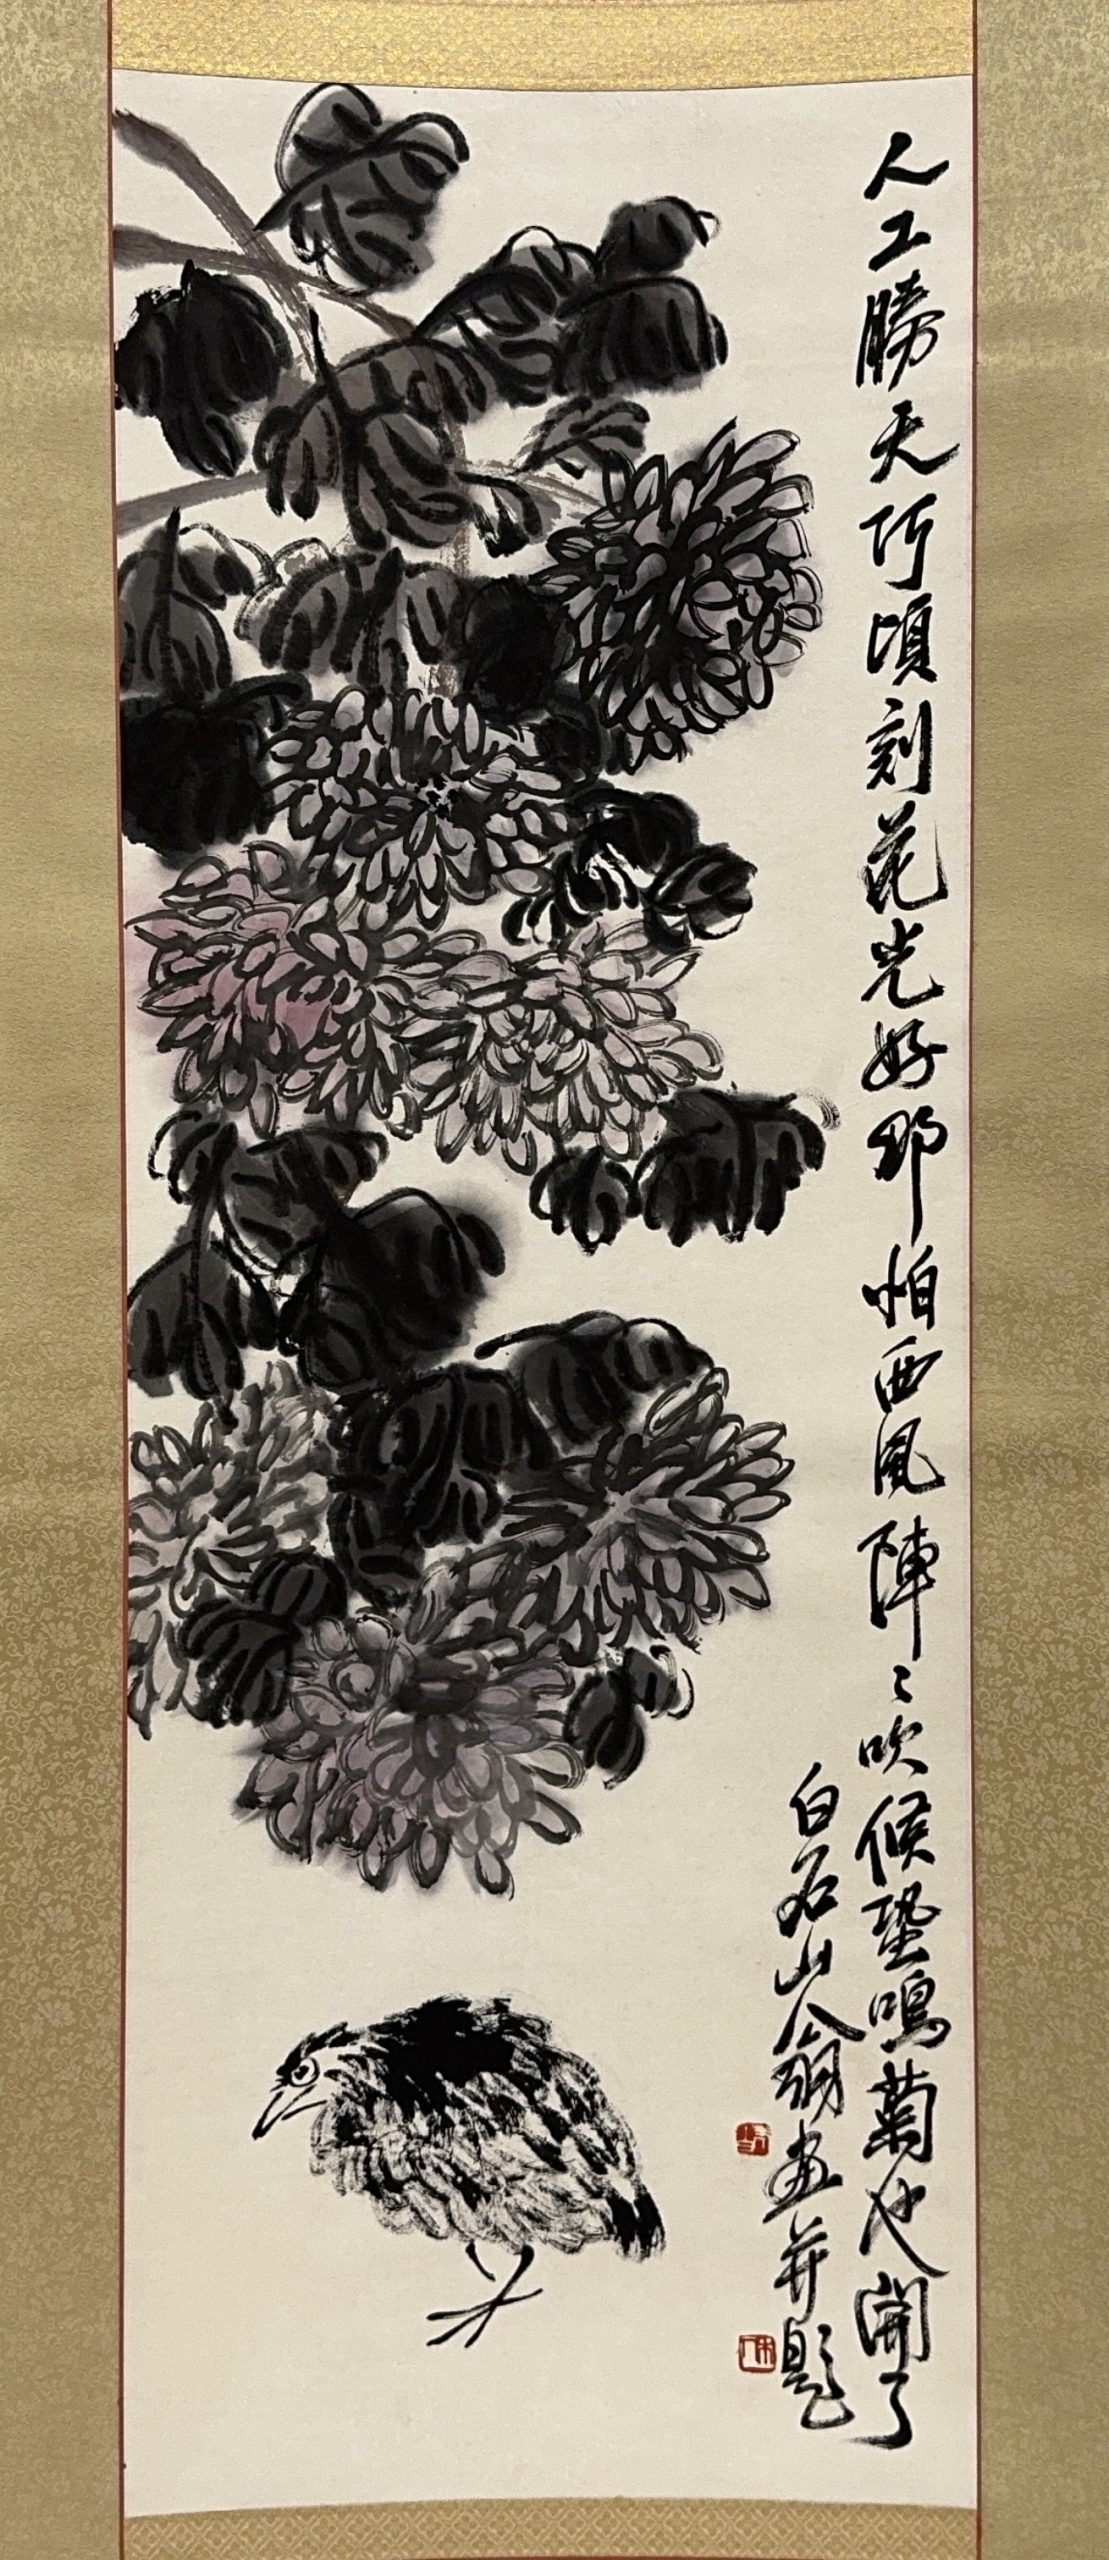 人工勝天巧頃刻花光好那怕西風陣〻吹候蛩鳴菊也開了
白石山翁画并題